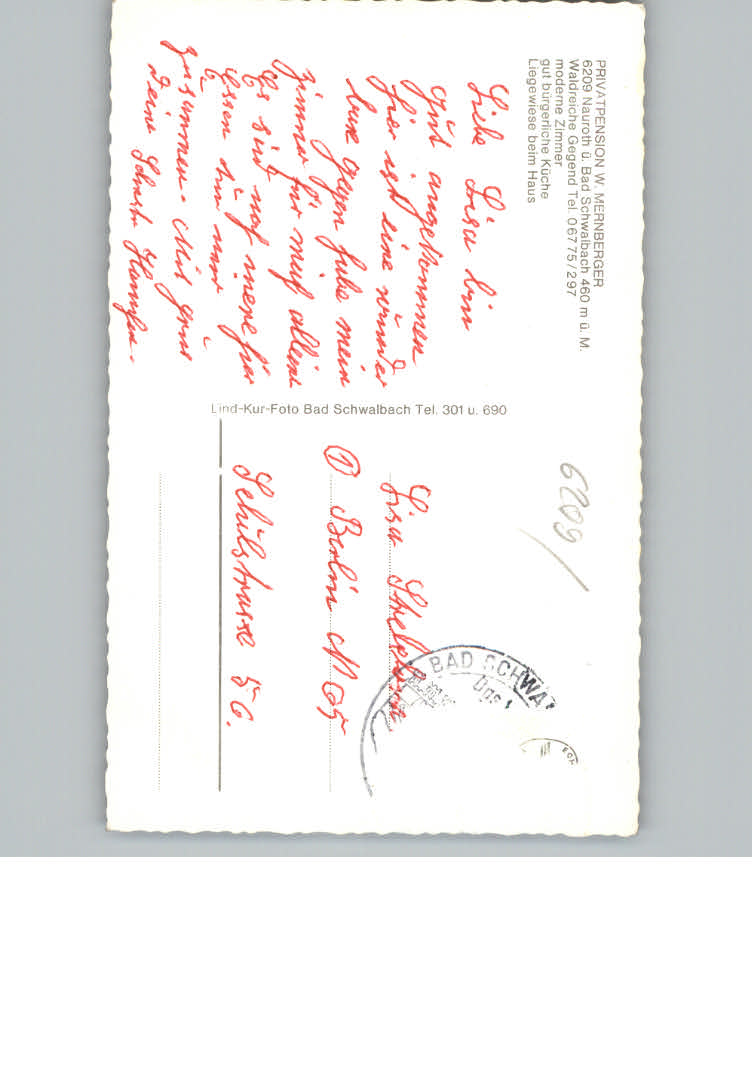 PRIVATPENSION W. MERNBERGER
6209 Nauroth ü. Bad Schwalbach 460 m ü. M.
Waldreiche Gegend Tel. 06775/297
moderne Zimmer
gut bürgerliche Küche
Liegewiese beim Haus
Liebe Lisa bin
gut angekommen
hier ist eine wunder
bare gegen habe mein
zimmer für mich allein
Es sind noch mere hier
Essen tun mir
zusammen. Mit grus
Deine
Lind-Kur-Foto Bad Schwalbach Tel. 301 u. 690
6209/
BAD SCHWA
Lisa
① Berlin N 65
Schulstrasse 56.